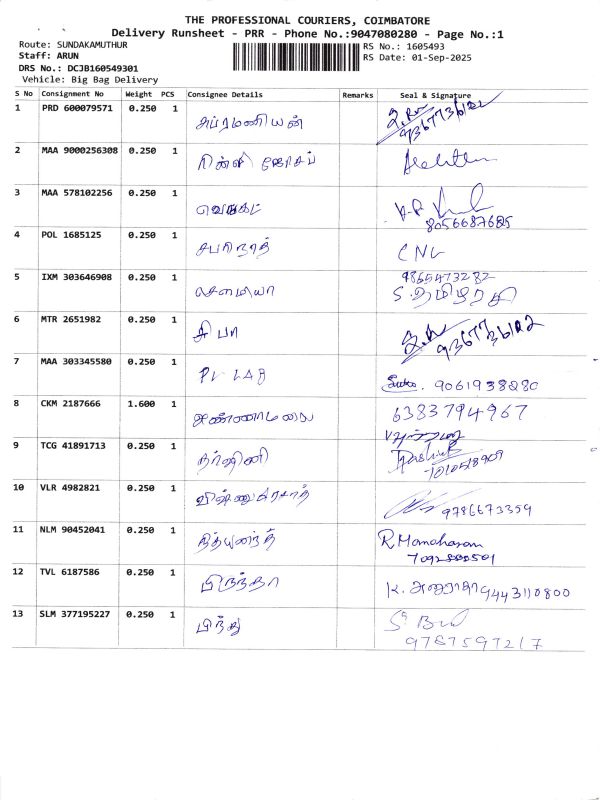 THE PROFESSIONAL COURIERS, COIMBATORE
Delivery Runsheet - PRR - Phone No.:9047080280 - Page No.:1
Route: SUNDAKAMUTHUR
RS No.: 1605493
Staff: ARUN
RS Date: 01-Sep-2025
DRS No.: DCJB160549301
Vehicle: Big Bag Delivery
S No Consignment No Weight PCS Consignee Details Remarks Seal & Signature
1 PRD 600079571 0.250 1 சுப்ரமணியன்
9367736122
2 MAA 9000256308 0.250 1 ஜோசப்
3 MAA 578102256 0.250 1 வெங்கட்
8056687685
4 POL 1685125 0.250 1 சபரிநாத் CNC
5 IXM 303646908 0.250 1 சௌமியா 9865473282
S. தமிழரசி
6 MTR 2651982 0.250 1 சிபா
9367736122
7 MAA 303345580 0.250 1 LAB 9061938280
8 CKM 2187666 1.600 1 அண்ணாமலை 6383794967
9 TCG 41891713 0.250 1 தர்ஷினி
10 VLR 4982821 0.250 1 விஷ்ணுபிரசாத் 9786673359
11 NLM 90452041 0.250 1 R Manoharan
12 TVL 6187586 0.250 1 பிருந்தா K. 9443110800
13 SLM 377195227 0.250 1 பிந்து
9787597217